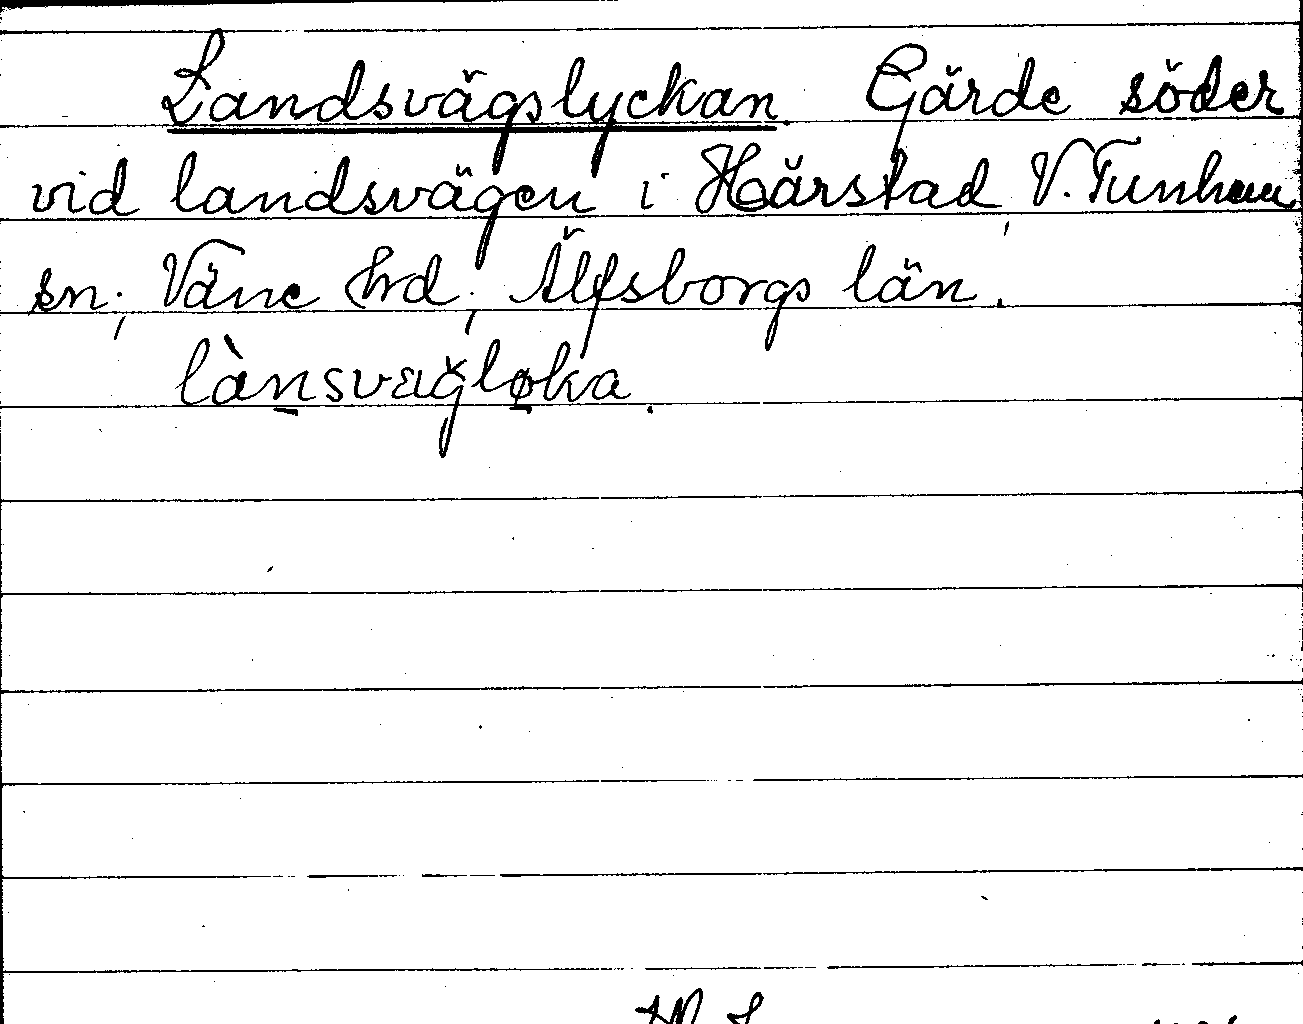 Landsvägslyckan. Gärde söder
vid landsvägen i Härstad, V. Tunhem
sn., Väne hrd., Älfsborgs län.
lànsvaǧløka.